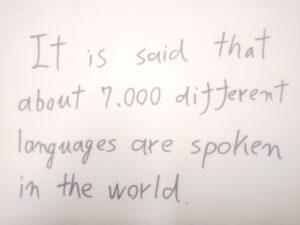 It is said that
about 7.000 different
languages are spoken
in the world.